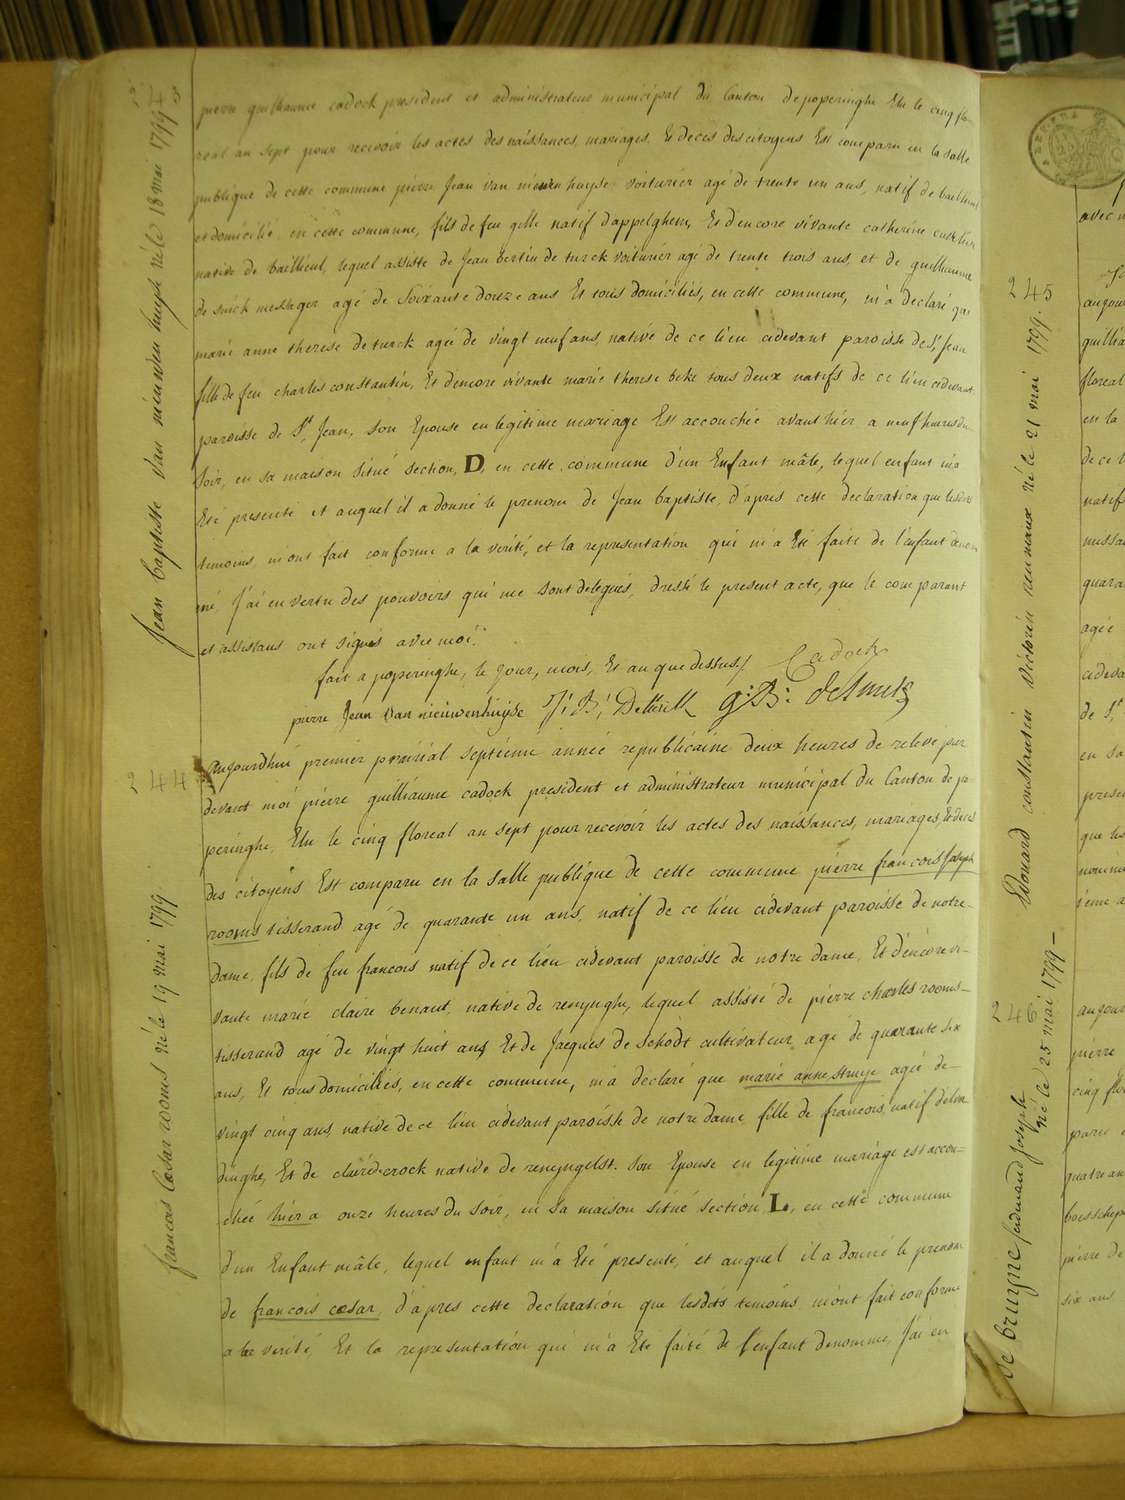 243
jean baptiste van nieuwen huyse né le 18 mai 1799
pierre guilliaume cadock president et administrateur municipal du Canton de poperinghe Elu le cinq flo-
real an sept pour recevoir les actes des naissances, mariages, & deces des citoyens Est comparu en la salle
publique de cette commune pierre Jean van nieuwenhuyse voiturier agé de trente un ans, natif de bailleul
et domicilié en cette commune, fils de feu gille natif d'appelghem, Et d'encore vivante catherine
native de bailleul, lequel assisté de Jean bertin de turck voiturier agé de trente trois ans, et de guilliaume
de smick messager agé de Soixante douze ans Et tous domiciliés, en cette commune, m'a declaré que
marie anne therese de turck agée de vingt neuf ans, native de ce lieu cidevant paroisse de St Jean
fille de feu charles constantin, Et d'encore vivante marie therese beke tous deux natifs de ce lieu cidevant
paroisse de St Jean, son Epouse en legitime mariage Est accouchée avant hier a neuf heures du
Soir, en sa maison situé section, D, en cette commune d'un Enfant mâle, lequel enfant m'a
Eté presenté et auquel il a donné le prenom de Jean baptiste, d'apres cette declaration que lesdits
temoins m'ont fait conforme a la verité, et la representation qui m'a Eté faite de l'enfant denom
mé, J'ai en vertu des pouvoirs qui me sont delegues, dressé le present acte, que le comparant
et assistans ont signés avec moi.
fait a poperinghe, le Jour, mois, Et an que dessus./ Cadock
pierre Jean van nieuwenhuijse J: B:
244
francois Cesar rooms né le 19 mai 1799
Aujourdhui premier prairial septieme année republicaine deux heures de relevé par
devant moi pierre guilliaume cadock president et administrateur municipal du Canton de po-
peringhe, Elu le cinq floreal an sept pour recevoir les actes des naissances, mariages, & deces
des citoyens Est comparu en la salle publique de cette commune pierre francois Joseph
rooms tisserand agé de quarante un ans, natif de ce lieu cidevant paroisse de notre-
Dame, fils de feu francois natif de ce lieu cidevant paroisse de notre dame, Et d'encore vi-
vante marie claire benaut, native de renynghe, lequel assisté de pierre charles rooms-
tisserand agé de vingt huit ans Et de Jacques de Schodt cultivateur, agé de quarante six
ans, Et tous domiciliés, en cette commune, m'a declaré que marie anne struye agée de-
vingt cinq ans, native de ce lieu cidevant paroisse de notre dame fille de francois, natif d'elver
dinghe, Et de claire decrock native de renyngelst. son Epouse en legitime mariage est accou-
chée hier a onze heures du Soir, en sa maison situé section, L, en cette commune
d'un Enfant mâle, lequel enfant m'a Eté presenté, et auquel il a donné le prenom
de francois cæsar, d'apres cette declaration que lesdits temoins, m'ont fait conforme
a la verité, Et la representation qui m'a Eté faite de l'enfant denommé, J'ai en
245
Edouard constantin victorin né le 21 mai 1799.
245
de bruyne ferdinand joseph
né le 25 mai 1799-
avec
aujour
floreal
en la
de ce
natif
quara
agée
cideva
de St
en sa
presen
que les
aujour
pierre
cinq flo
paru
quatre an
pierre de
six ans